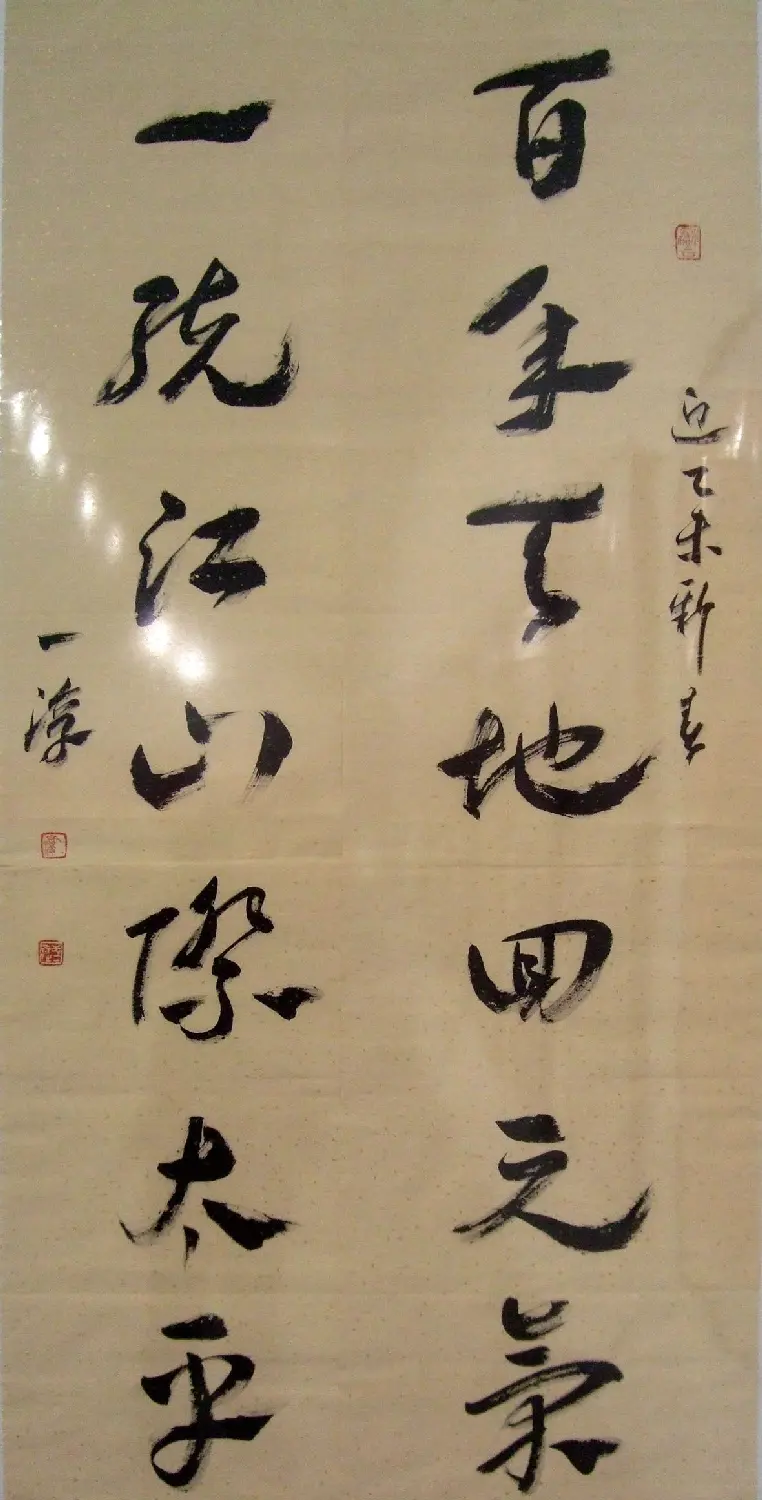 迎乙未新春
百年天地回元氣
一統江山際太平
一